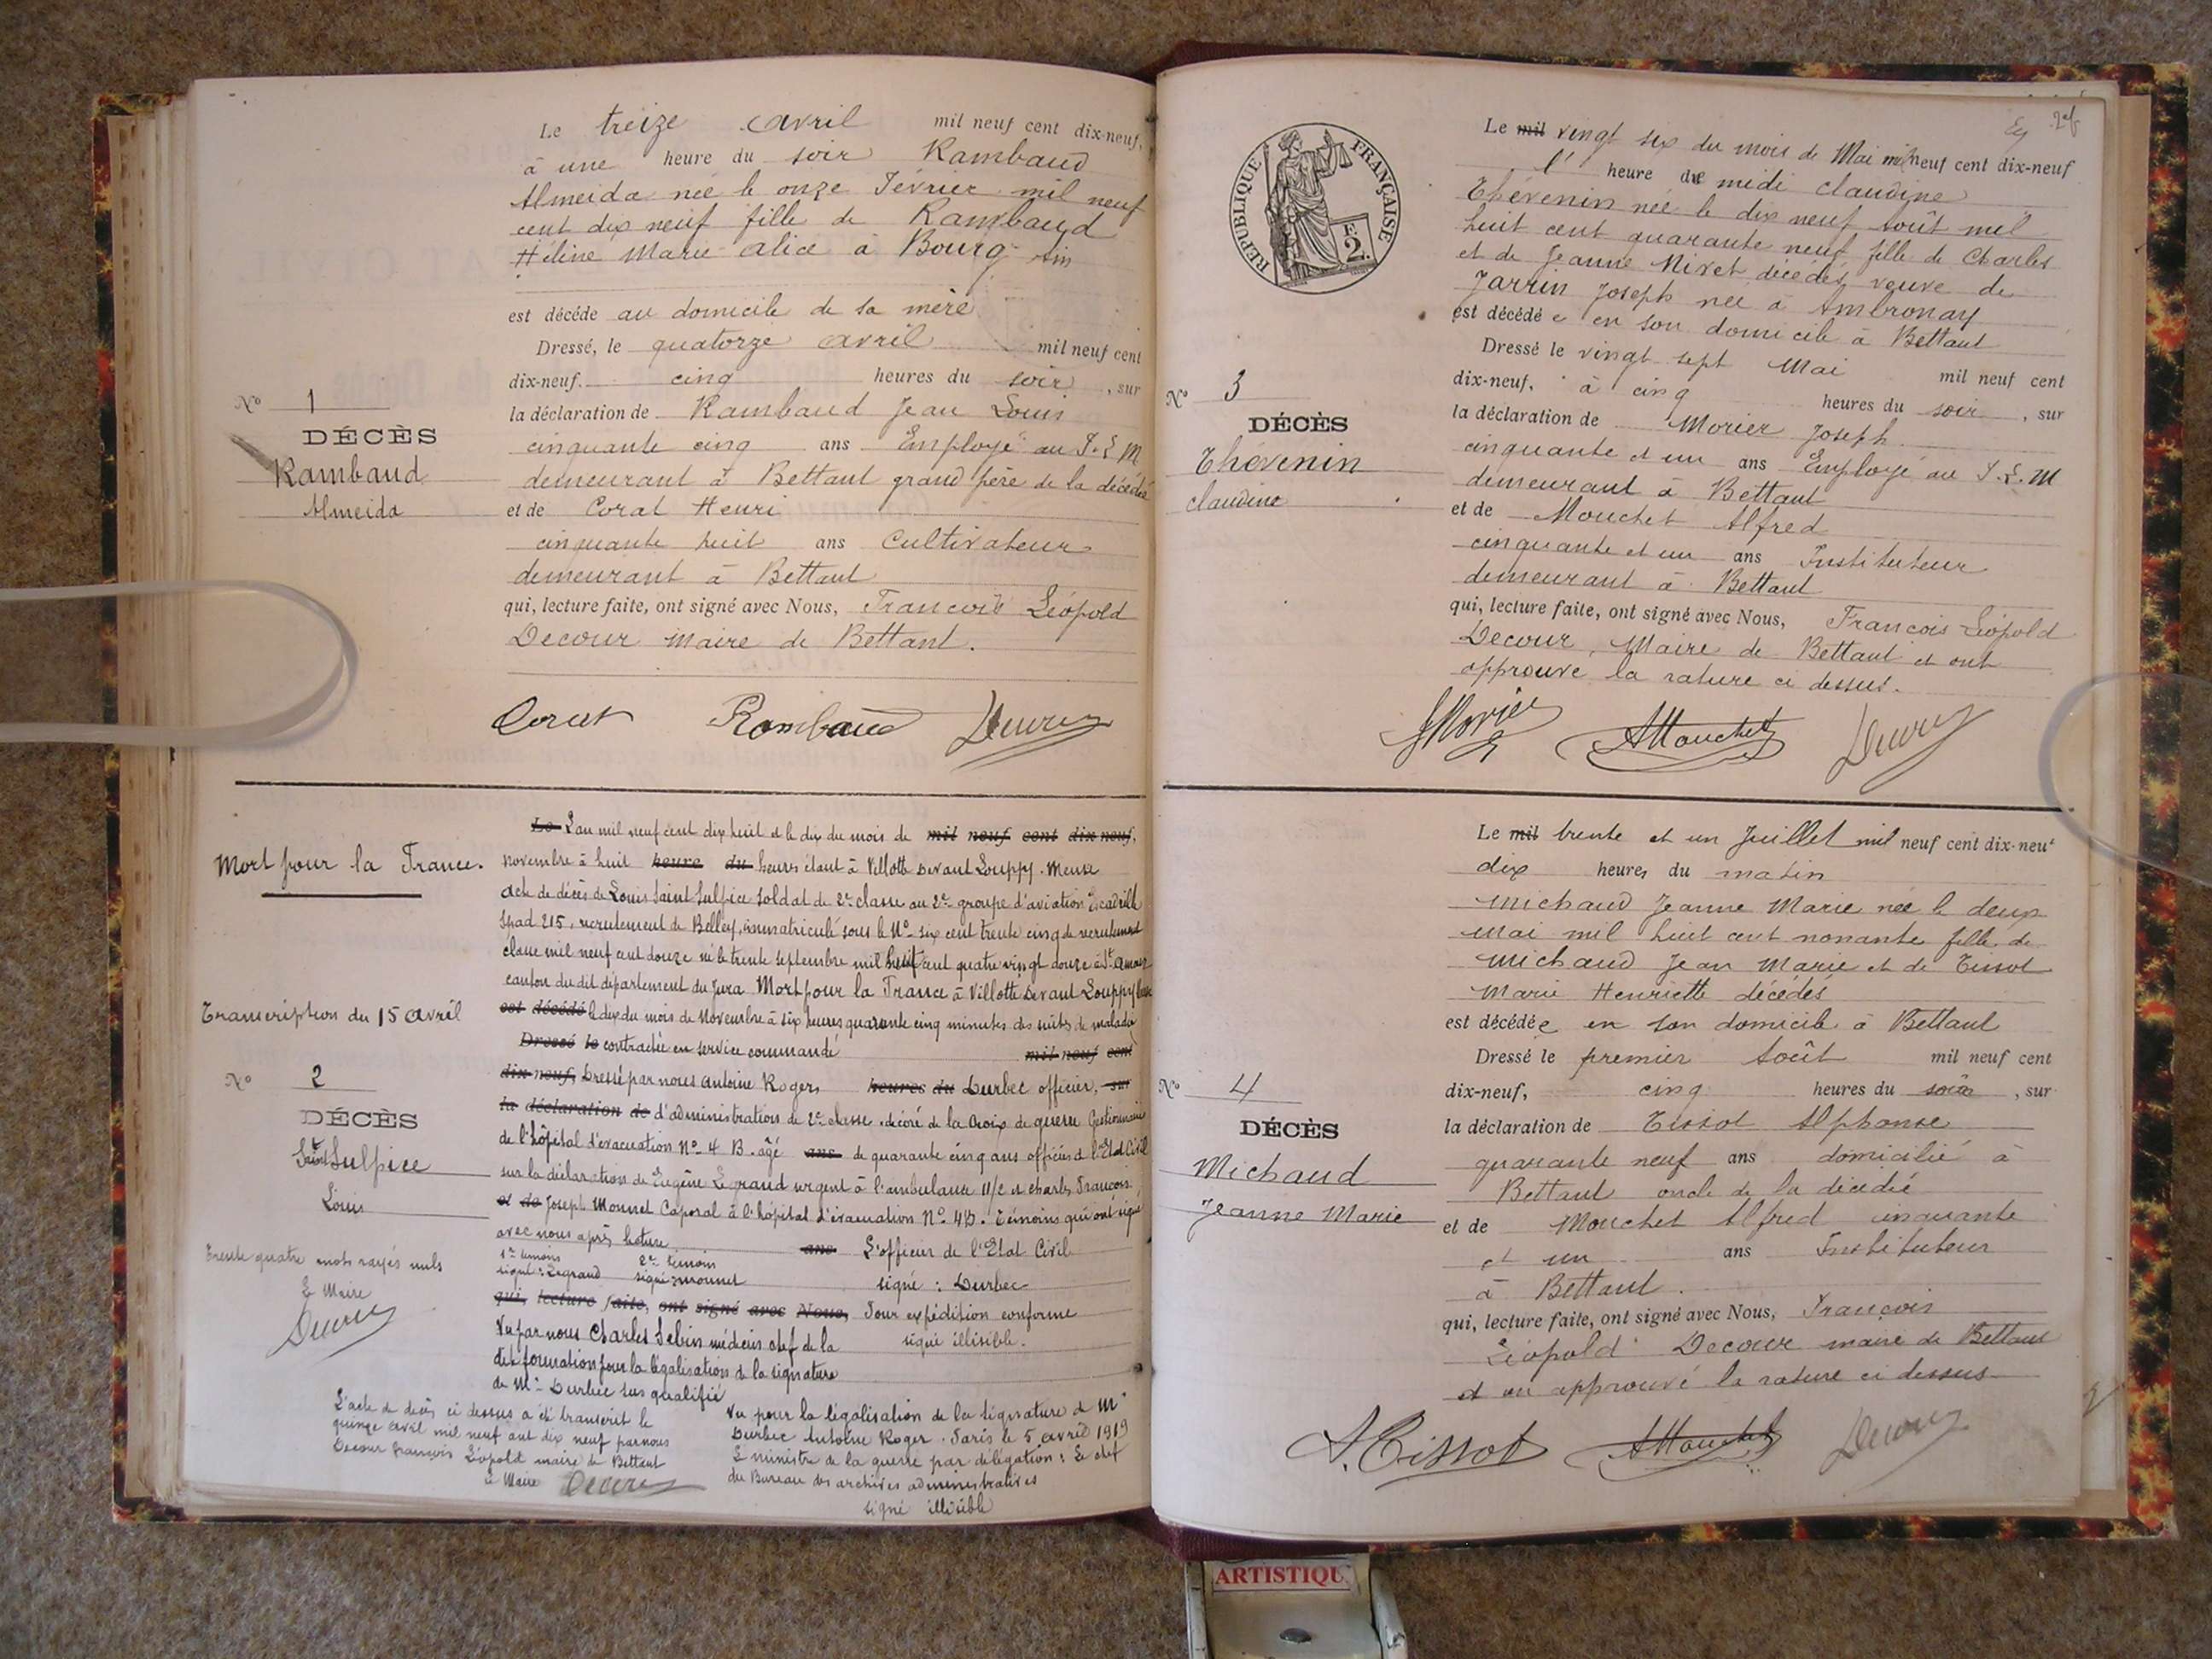 Le treize avril mil neuf cent dix-neuf,
à une heure du soir Rambaud
Almeida née le onze Février mil neuf
cent dix neuf fille de Rambaud
Hélène Marie Alice à Bourg Ain
est décédé au domicile de sa mère
Dressé, le quatorze avril mil neuf cent
dix-neuf. cinq heures du soir, sur
la déclaration de Rambaud Jean Louis
cinquante cinq ans Employé au P.L.M
demeurant à Bettant grand père de la décédée
et de Corat Henri
cinquante huit ans Cultivateur
demeurant à Bettant
qui, lecture faite, ont signé avec Nous, François Léopold
Decour maire de Bettant.
N° 1
DÉCÈS
Rambaud
Almeida
Corat Rambaud Decour
Mort pour la France.
Transcription du 15 avril
N° 2
DÉCÈS
Saint Sulpice
Louis
Trente quatre mots rayés nuls
Le Maire
Decour
Le L'an mil neuf cent dix huit et le dix du mois de mil neuf cent dix neuf,
novembre à huit heure du heures étant à Villotte Devant Louppy. Meuse
acte de décès de Louis Saint Sulpice soldat de 2e classe au 2e groupe d'aviation Escadrille
Spad 215, recrutement de Belley, immatriculé sous le N° six cent trente cinq de recrutement
classe mil neuf cent douze né le trente septembre mil huit cent quatre vingt douze à St Amour
canton du dit département du Jura Mort pour la France à Villotte Devant Louppy
est décédé le dix du mois de Novembre à six heures quarante cinq minutes des suites de maladie
Dressé le contractée en service commandé mil neuf cent
dix-neuf, Dressé par nous Antoine Roger heures du Durbec officier, sur
la déclaration de d'administration de 2e classe, décoré de la Croix de guerre Gestionnaire
de l'hôpital d'évacuation N° 4 B. âgé ans de quarante cinq ans officier de l'Etat Civil
sur la déclaration de Eugène Legrand sergent à l'ambulance 11/2 et Charles François
et de Joseph Mounet Caporal à l'hôpital d'évacuation N° 4B. Témoins qui ont signé
avec nous après lecture ans L'officier de l'Etat Civil
1er témoin 2e témoin
signé: Legrand signé: Mounet signé: Durbec
qui, lecture faite, ont signé avec Nous, Pour expédition conforme
Vu par nous Charles médecin chef de la signé illisible.
dite formation pour la légalisation de la signature
de Mr Durbec sus qualifié
L'acte de décès ci dessus a été transcrit le
quinze avril mil neuf cent dix neuf par nous
Decour François Léopold maire de Bettant
Le Maire Decour
Vu pour la légalisation de la signature de Mr
Durbec Antoine Roger. Paris le 5 avril 1919
Le ministre de la guerre par délégation: Le chef
du Bureau des archives administratives
signé illisible
RÉPUBLIQUE FRANÇAISE
E
2.
Le mil vingt six du mois de Mai mil neuf cent dix-neuf
l' heure de midi Claudine
Thévenin née le dix neuf Août mil
huit cent quarante neuf fille de Charles
et de Jeanne Nivet décédés, veuve de
Jarrin Joseph née à Ambronay
est décédé e en son domicile à Bettant
Dressé le vingt sept Mai mil neuf cent
dix-neuf, à cinq heures du soir, sur
la déclaration de Morier Joseph
cinquante et un ans Employé au P.L.M
demeurant à Bettant
et de Mouchet Alfred
cinquante et un ans Instituteur
demeurant à Bettant
qui, lecture faite, ont signé avec Nous, François Léopold
Decour, Maire de Bettant et ont
approuvé la rature ci dessus.
N° 3
DÉCÈS
Thévenin
Claudine
JMorier AMouchet Decour
Le mil trente et un Juillet mil neuf cent dix-neuf
dix heures du matin
Michaud Jeanne Marie née le deux
mai mil huit cent nonante fille de
Michaud Jean Marie et de Tissot
Marie Henriette décédés
est décédée en son domicile à Bettant
Dressé le premier Août mil neuf cent
dix-neuf, cinq heures du soir, sur
la déclaration de Tissot Alphonse
quarante neuf ans domicilié à
Bettant oncle de la décédée
et de Mouchet Alfred cinquante
et un ans Instituteur
à Bettant.
qui, lecture faite, ont signé avec Nous, François
Léopold Decour maire de Bettant
et on approuvé la rature ci dessus
N° 4
DÉCÈS
Michaud
Jeanne Marie
A. Tissot AMouchet Decour
ARTISTIQU